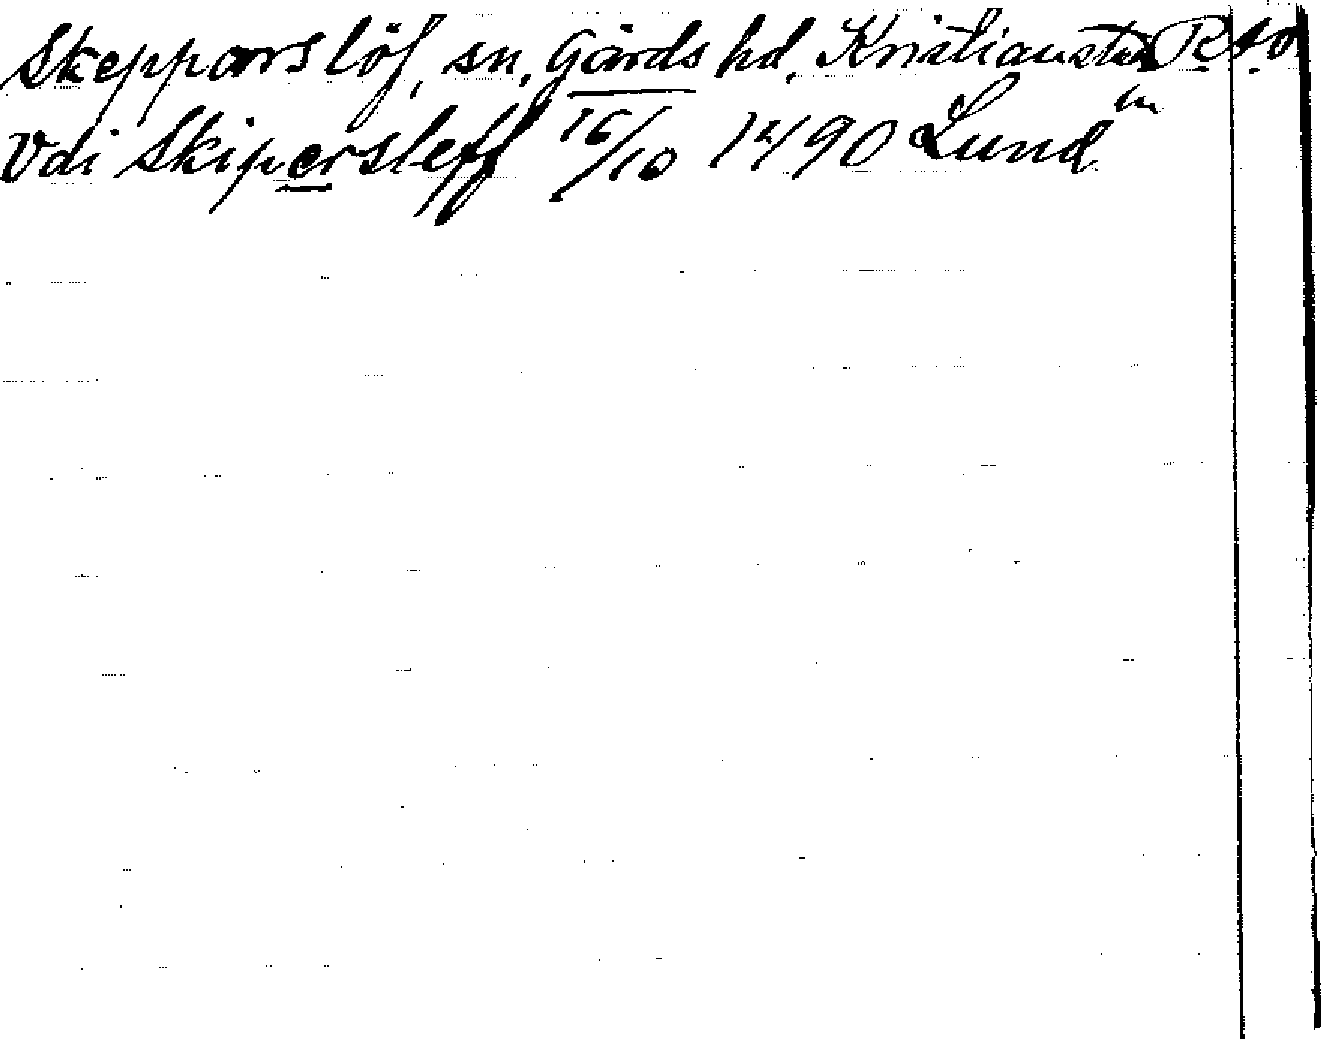 Skepparslöf, sn, Gärds hd, Kristianstads
Vdi Skipersleff 16/10 1490 Lund